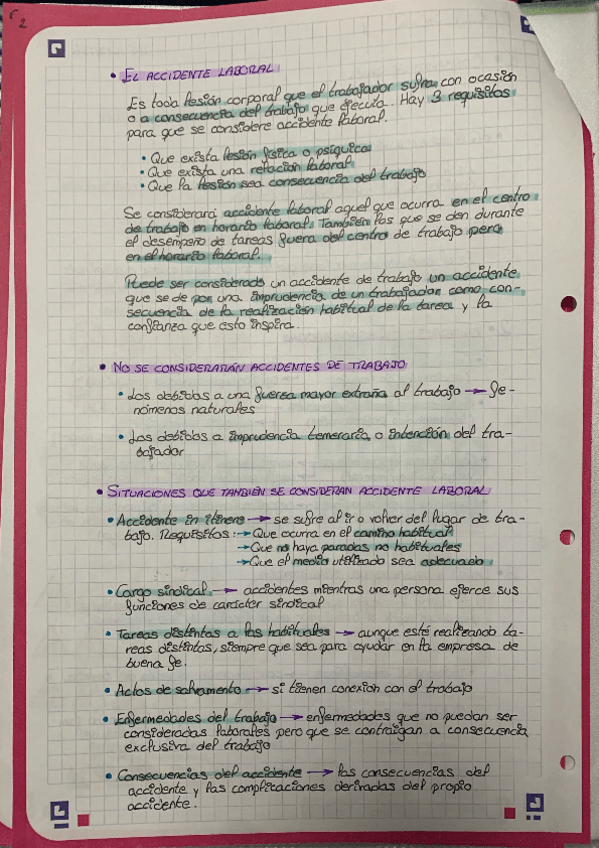 2
• EL ACCIDENTE LABORAL
Es toda lesión corporal que el trabajador sufra con ocasión
o a consecuencia del trabajo que ejecuta. Hay 3 requisitos
para que se considere accidente laboral.
• Que exista lesión física o psíquica
• Que exista una relación laboral
• Que la lesión sea consecuencia del trabajo
Se considerará accidente laboral aquel que ocurra en el centro
de trabajo en horario laboral. También los que se den durante
el desempeño de tareas fuera del centro de trabajo pero
en el horario laboral.
Puede ser considerado un accidente de trabajo un accidente
que se de por una imprudencia de un trabajador como con-
secuencia de la realización habitual de la tarea y la
confianza que esto inspira.
• NO SE CONSIDERARÁN ACCIDENTES DE TRABAJO
• Los debidos a una fuersa mayor extraña al trabajo → fe-
nómenos naturales
• Los debidos a imprudencia temeraria o intención del tra-
bajador
• SITUACIONES QUE TANBIÉN SE CONSIDERAN ACCIDENTE LABORAL
• Accidente in itinere → se sufre al ir o volver del lugar de tra-
bajo. Requisitos: → Que ocurra en el camino habitual
→ Que no haya paradas no habituales
→ Que el medio utilizado sea adecuado
• Cargo sindical → accidentes mientras una persona ejerce sus
funciones de carácter sindical
• Tareas distintas a las habituales → aunque esté realizando ta-
reas distintas, siempre que sea para ayudar en la empresa de
buena fe.
• Actos de salvamento → si tienen conexion con el trabajo
• Enfermedades del trabajo → enfermedades que no puedan ser
consideradas laborales pero que se contraigan a consecuencia
exclusiva del trabajo
• Consecuencias del accidente → las consecuencias del
accidente y las complicaciones derivadas del propio
accidente.